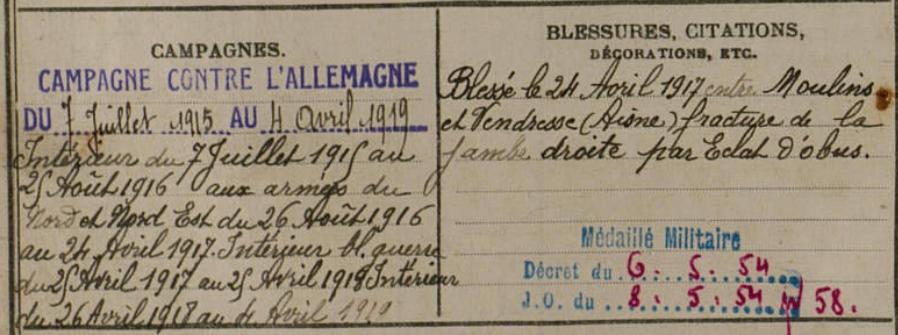 CAMPAGNES.
CAMPAGNE CONTRE L'ALLEMAGNE
DU 7 Juillet 1915 AU 4 Avril 1919
Intérieur du 7 Juillet 1915 au
25 Août 1916 aux armées du
Nord et Nord Est du 26 Août 1916
au 24 Avril 1917. Intérieur bl. guerre
du 25 Avril 1917 au 25 Avril 1918 Intérieur
du 26 Avril 1918 au 4 Avril 1919
BLESSURES, CITATIONS,
DÉCORATIONS, ETC.
Blessé le 24 Avril 1917 entre Moulins
et Vendresse (Aisne) fracture de la
jambe droite par Eclat d'obus.
Médaillé Militaire
Décret du 6. 5. 54
J.O. du 8. 5. 54 58.